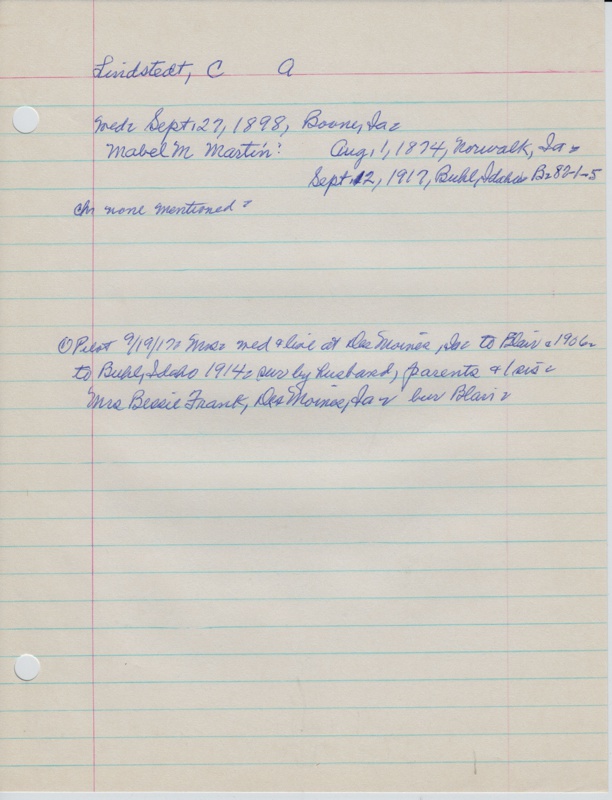 Lindstedt, C A
wed: Sept. 27, 1898, Boone, Ia
Mabel M Martin: Aug 1, 1874, Norwalk, Ia
Sept. 12, 1917, Buhl, Idaho B 82-1-5
ch none mentioned
① Pilot 9/19/17 Mrs wed & live at Des Moines, Ia to Blair 1906
to Buhl, Idaho 1914 sur by husband, parents & 1 sis
Mrs Bessie Frank, Des Moines, Ia bur Blair